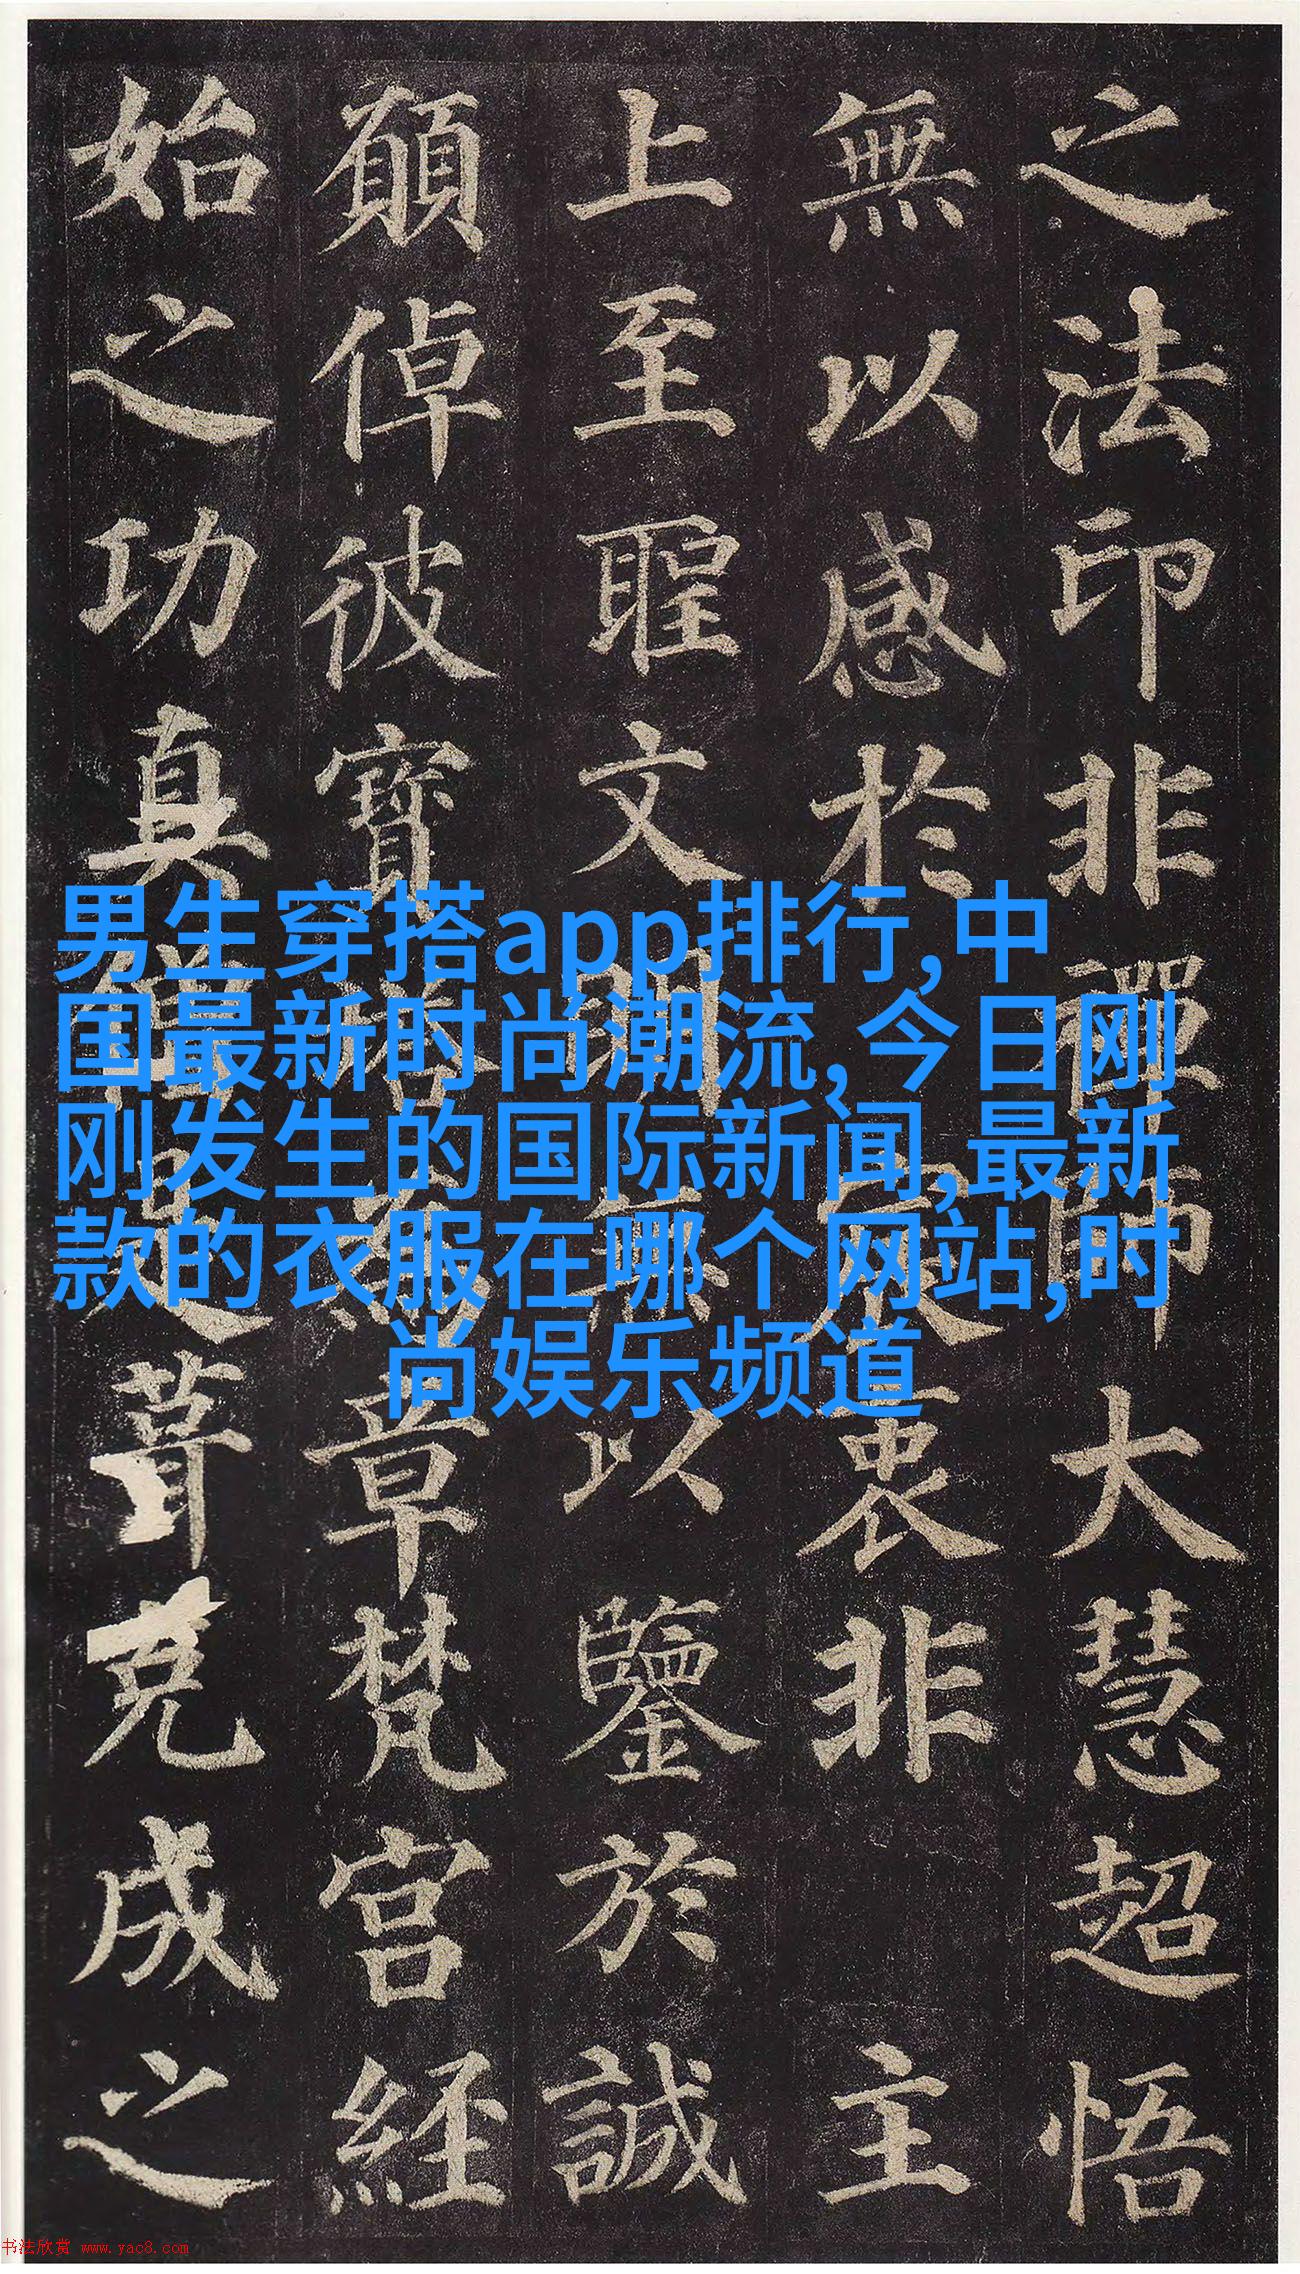 男生穿搭app排行,中
国最新时尚潮流,今日刚
刚发生的国际新闻,最新
款的衣服在哪个网站,时
尚娱乐频道
之法印非禪師大慧超悟
無以感於宸衷非主
上至聖文明無以鑒於誠
願倬彼寶塔為章梵宮經
始之功真僧是葺克成之
书法欣赏 www.yac8.com